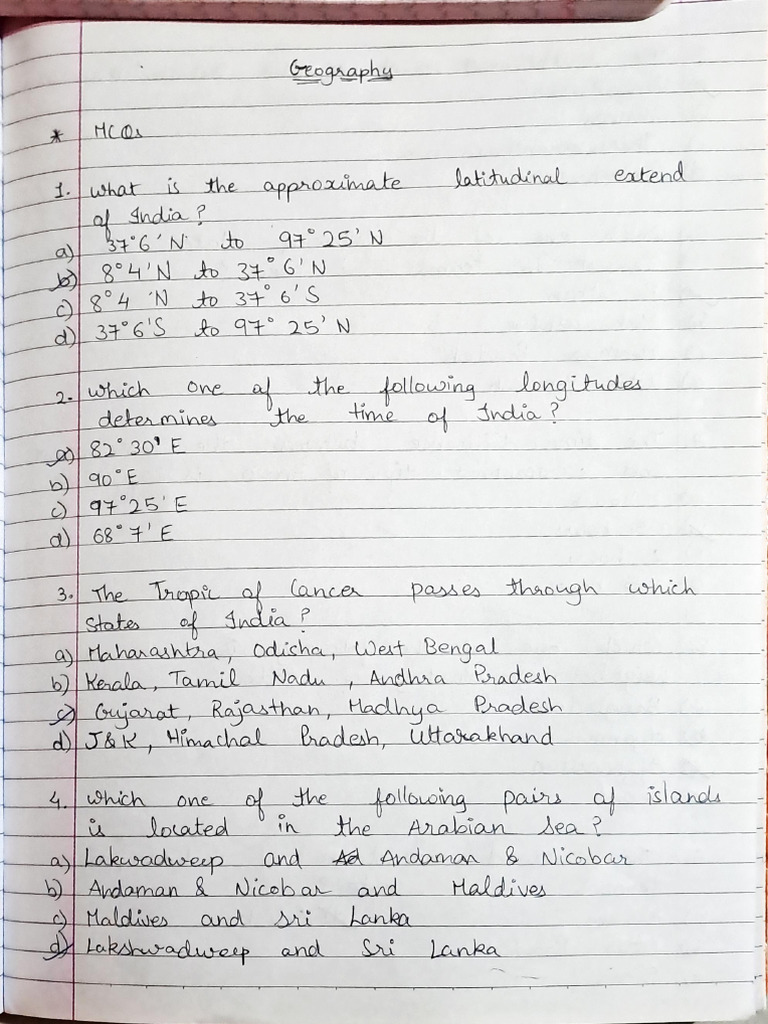 Geography
* MCQs
1. What is the approximate latitudinal extend
of India?
a) 37°6'N to 97°25'N
b) 8°4'N to 37°6'N
c) 8°4'N to 37°6'S
d) 37°6'S to 97°25'N
2. Which one of the following longitudes
determines the time of India?
a) 82°30'E
b) 90°E
c) 97°25'E
d) 68°7'E
3. The Tropic of Cancer passes through which
States of India?
a) Maharashtra, Odisha, West Bengal
b) Kerala, Tamil Nadu, Andhra Pradesh
c) Gujarat, Rajasthan, Madhya Pradesh
d) J&K, Himachal Pradesh, Uttarakhand
4. Which one of the following pairs of islands
is located in the Arabian Sea?
a) Lakwadweep and Ad Andaman & Nicobar
b) Andaman & Nicobar and Maldives
c) Maldives and Sri Lanka
d) Lakshwadweep and Sri Lanka